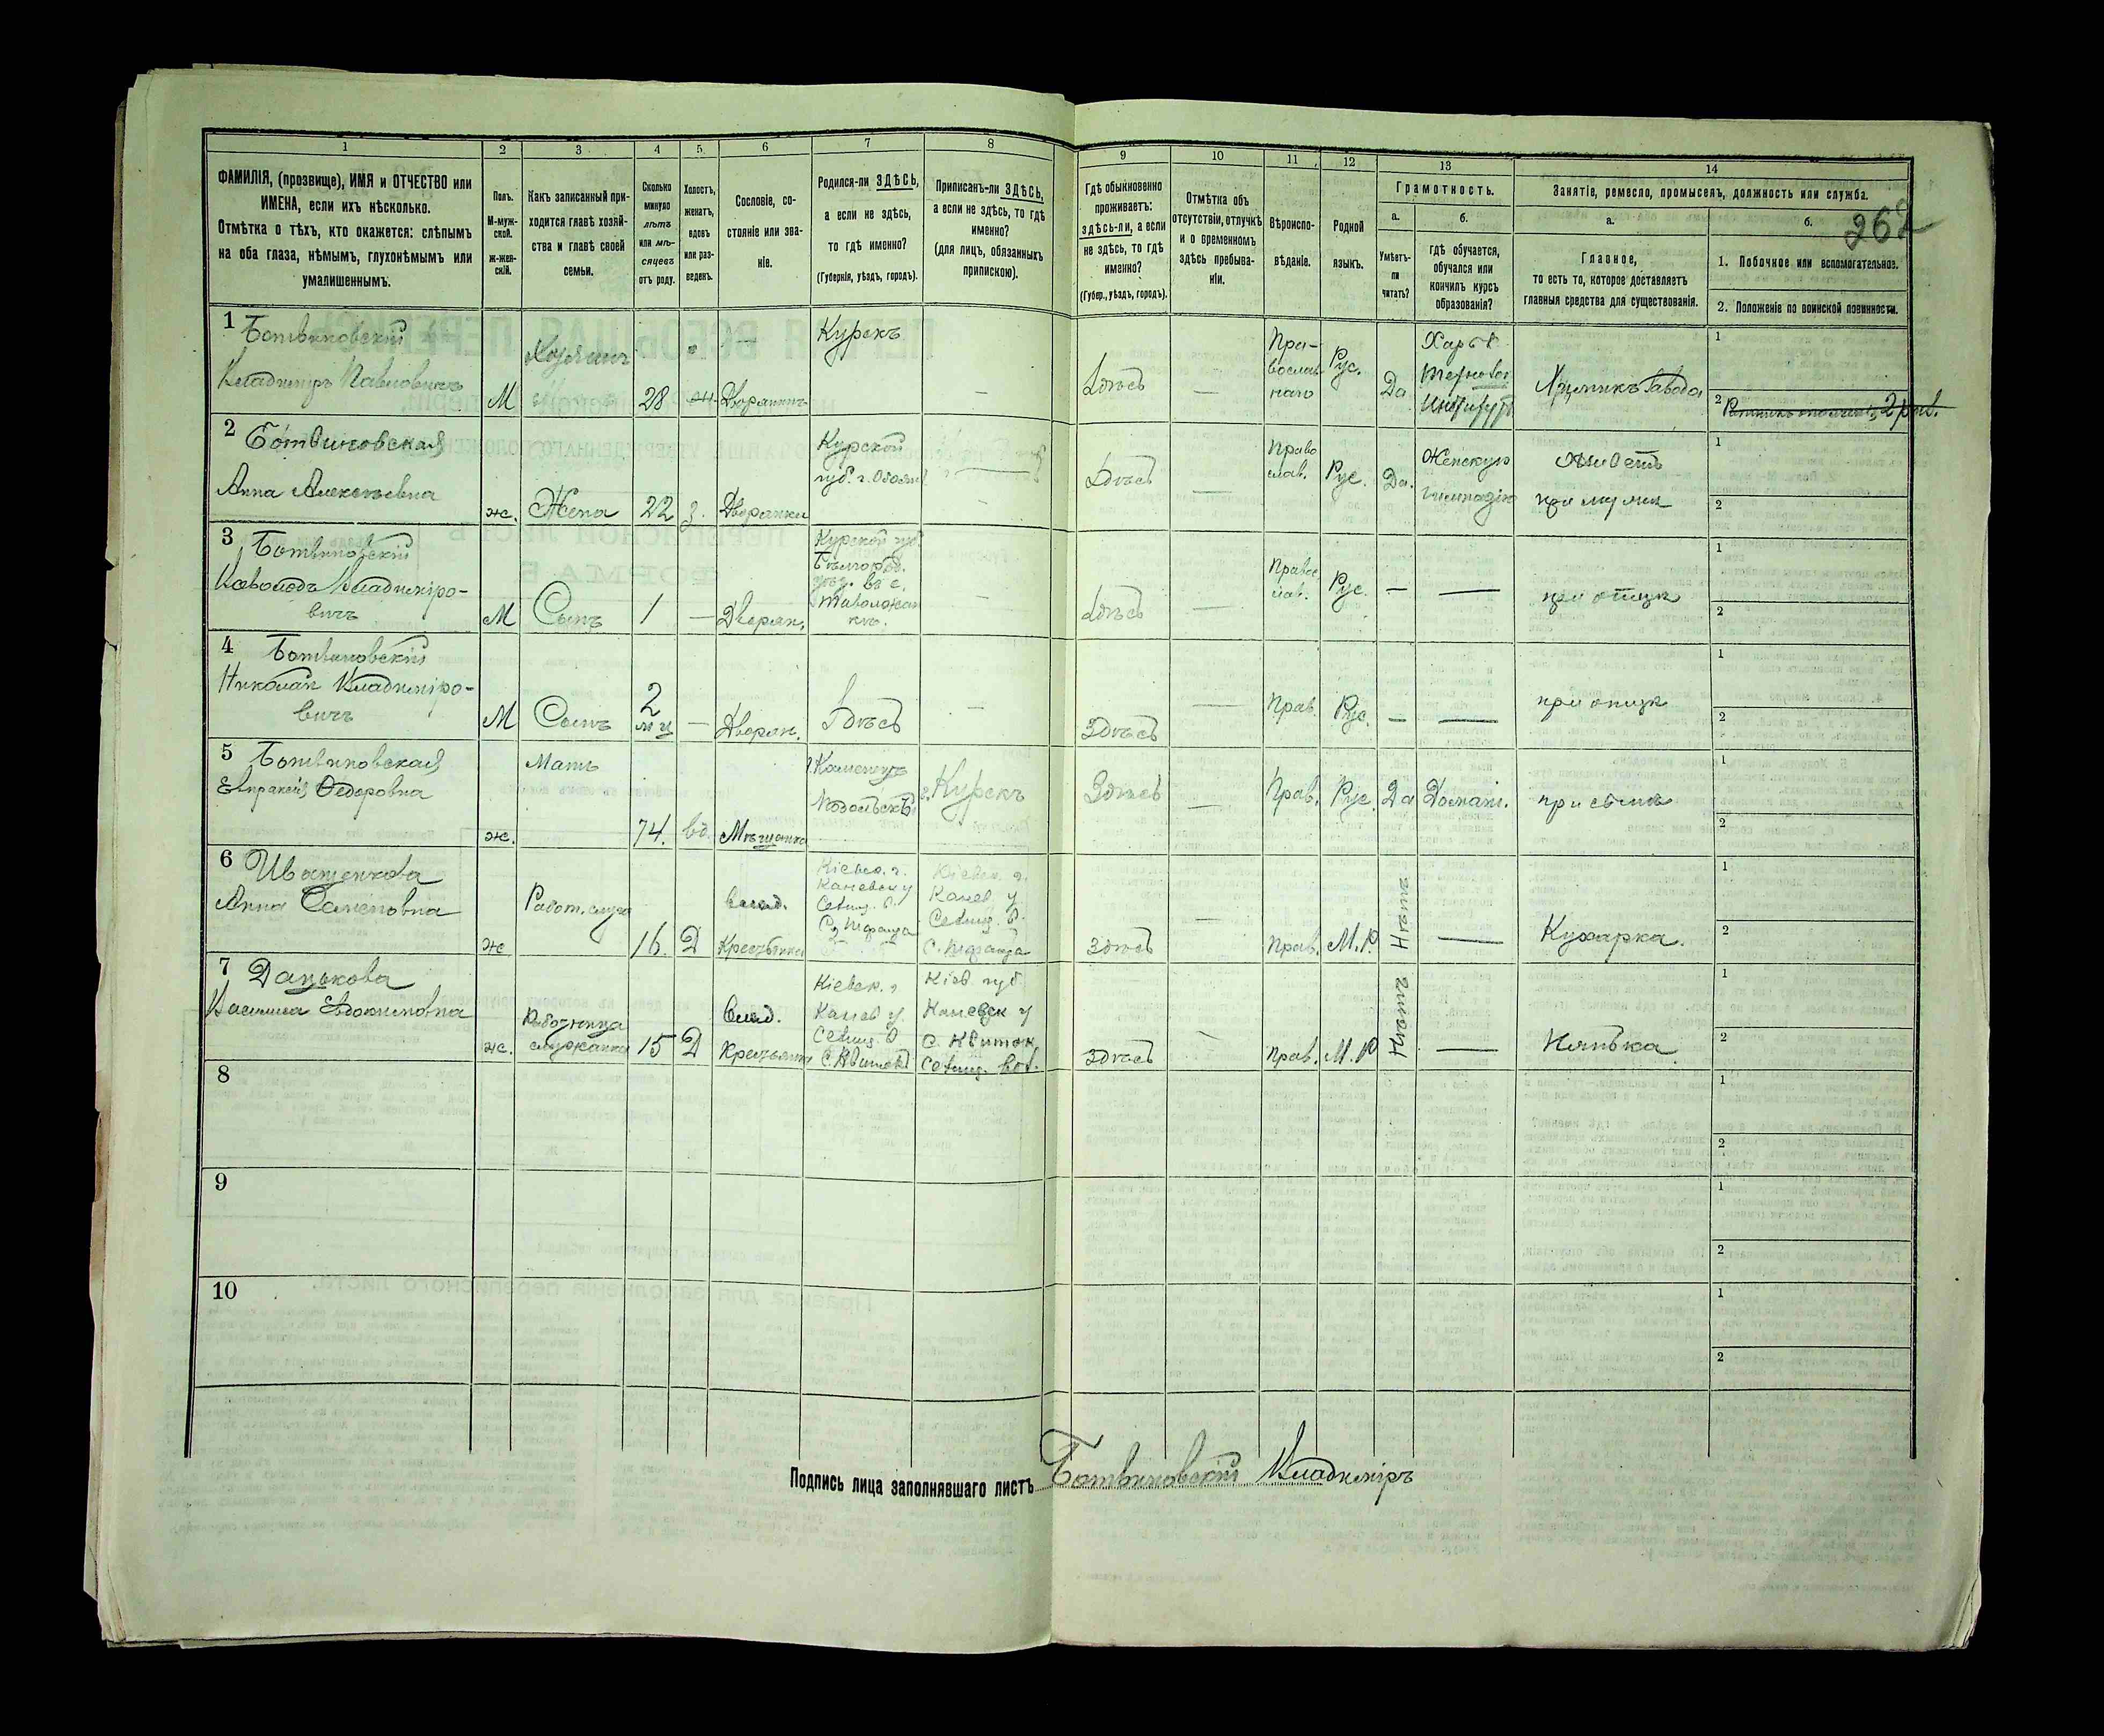 262
1 2 3 4 5 6 7 8 9 10 11 12 13 14
ФАМИЛІЯ, (прозвище), ИМЯ и ОТЧЕСТВО или
ИМЕНА, если ихъ нѣсколько.
Отмѣтка о тѣхъ, кто окажется: слѣпымъ
на оба глаза, нѣмымъ, глухонѣмымъ или
умалишеннымъ.
Полъ.
М-муж-
ской.
ж-жен-
скій.
Какъ записанный при-
ходится главѣ хозяй-
ства и главѣ своей
семьи.
Сколько
минуло
лѣтъ
или мѣ-
сяцевъ
отъ роду.
Холостъ,
женатъ,
вдовъ
или раз-
веденъ.
Сословіе, со-
стояніе или зва-
ніе.
Родился-ли ЗДѢСЬ,
а если не здѣсь,
то гдѣ именно?
(Губернія, уѣздъ, городъ).
Приписанъ-ли ЗДѢСЬ,
а если не здѣсь, то гдѣ
именно?
(для лицъ, обязанныхъ
припискою).
Гдѣ обыкновенно
проживаетъ:
здѣсь-ли, а если
не здѣсь, то гдѣ
именно?
(Губер., уѣздъ, городъ).
Отмѣтка объ
отсутствіи, отлучкѣ
и о временномъ
здѣсь пребыва-
ніи.
Вѣроиспо-
вѣданіе.
Родной
языкъ.
Грамотность.
а.
Умѣетъ-
ли
читать?
б.
гдѣ обучается,
обучался или
кончилъ курсъ
образованія?
Занятіе, ремесло, промыселъ, должность или служба.
а.
Главное,
то есть то, которое доставляетъ
главныя средства для существованія.
б.
1. Побочное или вспомогательное.
2. Положеніе по воинской повинности.
1 Ботвиновскій
Владиміръ Павловичъ
М
Хозяинъ
28
Дворянинъ
Курскъ
—
Здѣсь
—
Пра-
вослав-
наго
Рус.
Да
Институтъ
завода
1
2
2 Ботвиновская
Анна Алексѣевна
ж.
Жена
22
з.
Дворянка
Курской
губ. г. Обоянь
—
Здѣсь
—
Право
слав.
Рус.
Да.
Женскую
гимназію
живетъ
при мужѣ
1
2
3 Ботвиновскій
Всеволодъ Владиміро-
вичъ
М
Сынъ
1
—
Дворян.
Курской губ.
Бѣлгород.
уѣз. въ с.
—
Здѣсь
—
Правос
лав.
Рус.
—
—
при отцѣ
1
2
4 Ботвиновскій
Николай Владиміро-
вичъ
М
Сынъ
2
мц
—
Дворян.
Здѣсь
—
Здѣсь
—
Прав.
Рус.
—
—
при отцѣ
1
2
5 Ботвиновская
Евпраксія Ѳедоровна
ж.
Мать
74.
вд.
Мѣщанка
г. Каменецъ
Подольскъ
г. Курскъ
Здѣсь
—
Прав.
Рус.
Да
Домаш.
при сынѣ
1
2
6 Иващенкова
Анна Семеновна
ж
Работ. слуга
16.
Д
Крестьянка
Кіевск. г.
Каневск у
Кіевск. г.
Канев. у
здѣсь
—
Прав.
М. Р.
Нѣтъ
—
Кухарка.
1
2
7 Дацькова
Василиса Евдокимовна
ж.
Работница
служанка
15
Д
Крестьянка
Кіевск. г
Канев у.
с. Квитокъ
Кіев. губ
Каневск у
с. Квиток
здѣсь
прав.
М. Р
Нѣтъ
—
Нянька
1
2
8
1
2
9
1
2
10
1
2
Подпись лица заполнявшаго листъ Ботвиновскій Владиміръ